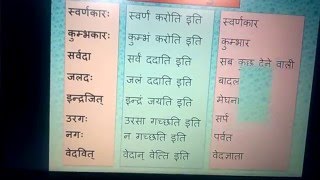 स्वर्णकारः स्वर्णं करोति इति स्वर्णकार
कुम्भकारः कुम्भं करोति इति कुम्भार
सर्वदा सर्वं ददाति इति सब कुछ देने वाली
जलदः जलं ददाति इति बादल
इन्द्रजित् इन्द्रं जयति इति मेघना
उरगः उरसा गच्छति इति सर्प
नगः न गच्छति इति पर्वत
वेदवित् वेदान् वेत्ति इति वेदज्ञाता